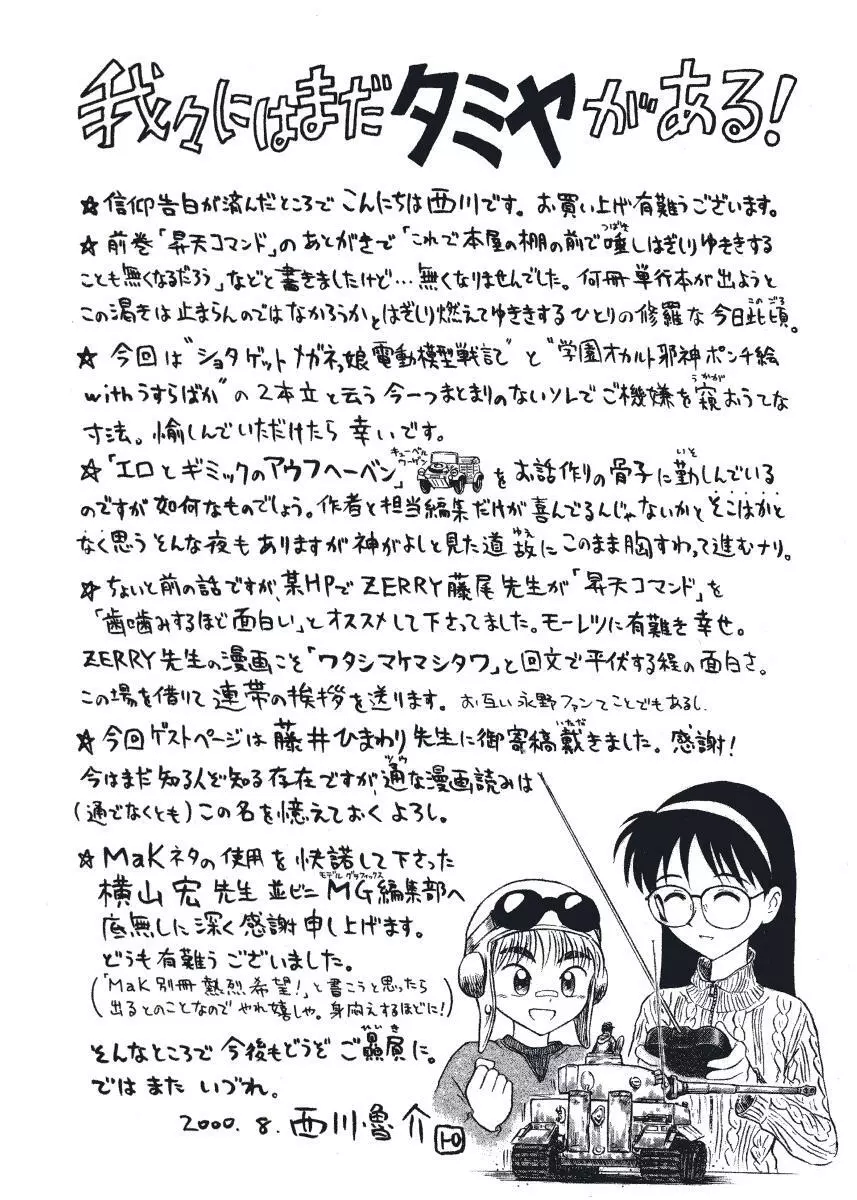 我々にはまだタミヤがある!
☆信仰告白が済んだところでこんにちは西川です。お買い上げ有難うございます。
☆前巻「昇天コマンド」のあとがきで「これで本屋の棚の前で唾しはぎしりゆききする
ことも無くなるだろう」などと書きましたけど…無くなりませんでした。何冊単行本が出ようと
この渇きは止まらんのではなかろうかとはぎしり燃えてゆききするひとりの修羅な今日此頃。
☆今回は"ショタゲットメガネっ娘電動模型戦記"と"学園オカルト邪神ポンチ絵
withうすらばか"の2本立と云う今一つまとまりのないソレでご機嫌を窺おうてな
寸法。愉しんでいただけたら幸いです。
☆「エロとギミックのアウフヘーベン」キューベルワーゲンをお話作りの骨子に勤しんでいる
のですが如何なものでしょう。作者と担当編集だけが喜んでるんじゃないかとそこはかと
なく思うそんな夜もありますが神がよしと見た道故にこのまま胸すわって進むナリ。
☆ちょいと前の話ですが、某HPでZERRY藤尾先生が「昇天コマンド」を
「歯噛みするほど面白い」とオススメして下さってました。モーレツに有難き幸せ。
ZERRY先生の漫画こそ「ワタシマケマシタワ」と回文で平伏する程の面白さ。
この場を借りて連帯の挨拶を送ります。お互い永野ファンてことでもあるし、
☆今回ゲストページは藤井ひまわり先生に御寄稿戴きました。感謝!
今はまだ知る人ぞ知る存在ですが、通な漫画読みは
(通でなくとも)この名を憶えておくよろし。
☆MaKネタの使用を快諾して下さった
横山宏先生並ビニMG編集部へ
底無しに深く感謝申し上げます。
どうも有難うございました。
(「MaK別冊熱烈希望!」と書こうと思ったら
出るとのことなのでやれ嬉しや。身悶えするほどに!)
そんなところで今後もどうぞご贔屓に。
ではまたいづれ。
2000.8.西川魯介